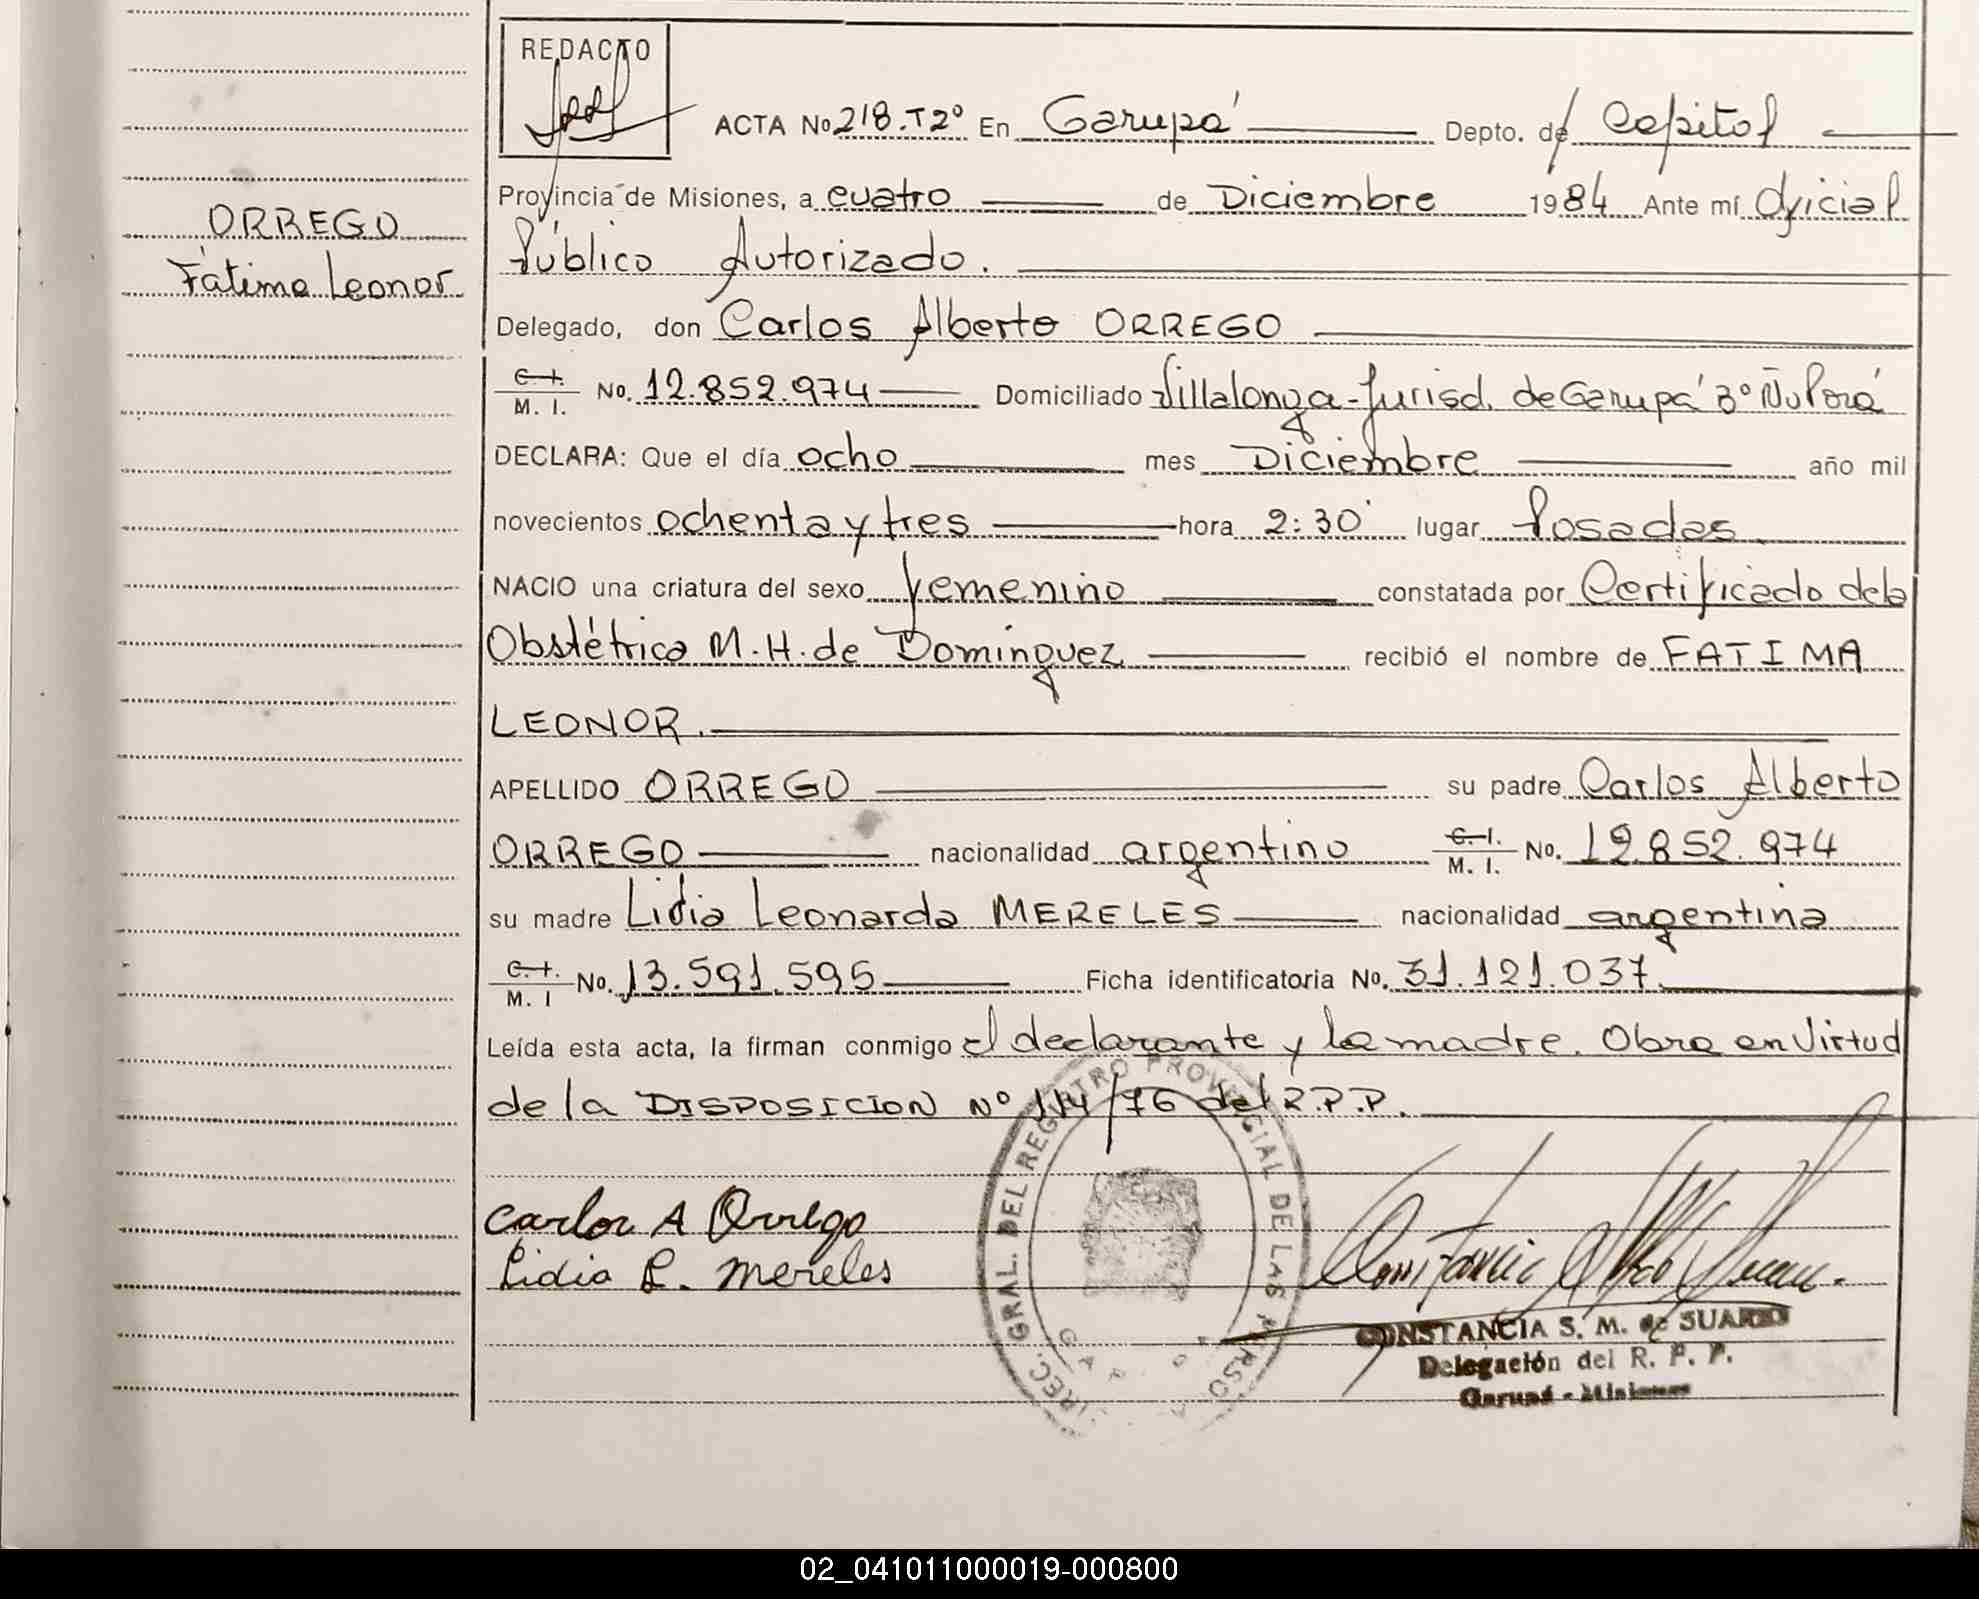 REDACTO
ACTA No 218.T2º En Garupá Depto. de Capital
Provincia de Misiones, a cuatro de Diciembre 1984 Ante mí Oficial
Público Autorizado.
ORREGO
Fátima Leonor
Delegado, don Carlos Alberto ORREGO
C.I. M. I. No. 12.852.974 Domiciliado Villalonga-Jurisd. de Garupá Bº Ñu Porá
DECLARA: Que el día ocho mes Diciembre año mil
novecientos ochenta y tres hora 2:30 lugar Posadas
NACIO una criatura del sexo femenino constatada por Certificado de la
Obstétrica M.H. de Domínguez recibió el nombre de FATIMA
LEONOR.
APELLIDO ORREGO su padre Carlos Alberto
ORREGO nacionalidad argentino C.I. M. I. No. 12.852.974
su madre Lidia Leonarda MERELES nacionalidad argentina
C.I. M. I No. 13.591.595 Ficha identificatoria No. 31.121.037
Leída esta acta, la firman conmigo el declarante y la madre. Obra en virtud
de la DISPOSICION Nº 114/76 del R.P.P.
Carlos A Orrego
Lidia L. Mereles
DIREC. GRAL. DEL REGISTRO PROVINCIAL DE LAS PERSONAS
GARUPA
CONSTANCIA S. M. de SUAREZ
Delegación del R. P. P.
Garupá - Misiones
02_041011000019-000800